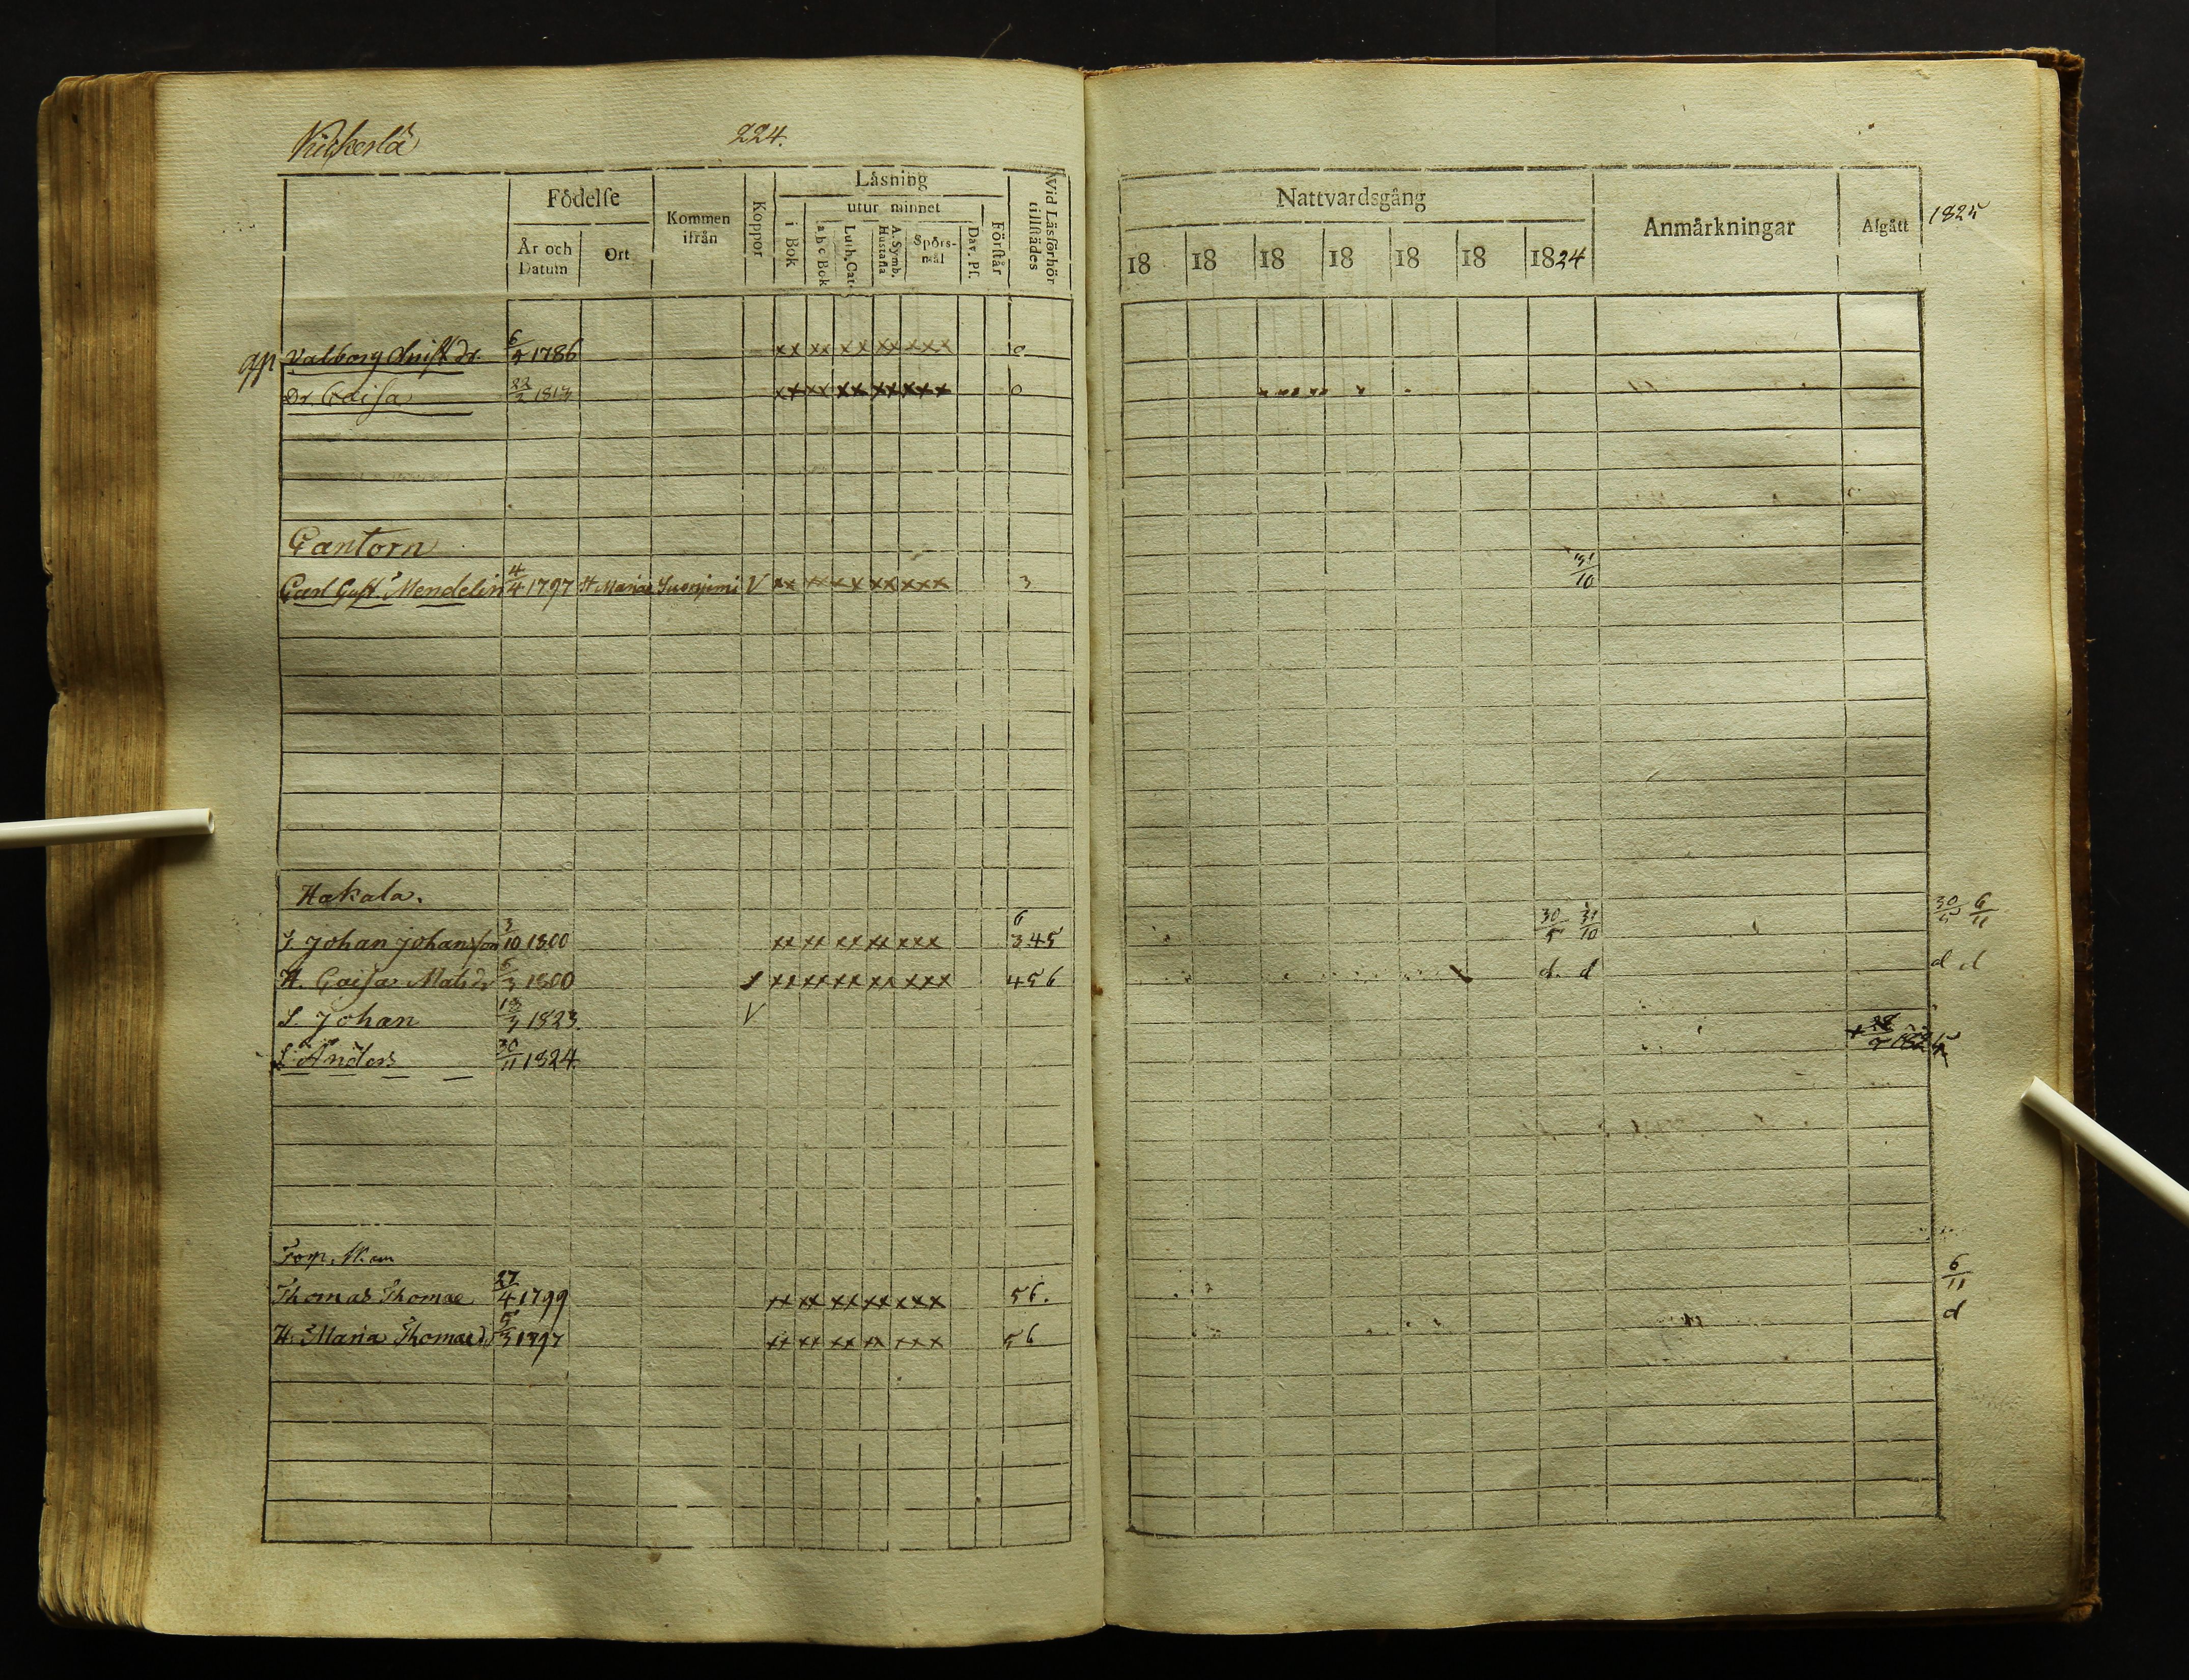 224.
Födelse
År och Datum
Ort
Kommen ifrån
Koppor
Läsning
i Bok
utur minnet
a b c Bok
Luth. Cat.
A. Symb. Hustafla
Spörsmål
Dav. Ps.
Förstår
Vid Läsförhör tillstädes
Valborg dr. 6/9 1786 xx xx xx xx xxx 0
Dr. Caisa 22/2 1813 xx xx xx xx xxx 0
Cantorn
Carl Gust. Mendelin 4/4 1797 St Mariae V xx xx xx xx xxx 3
Hakala.
Johan Johansson 3/10 1800 xx xx xx xx xxx 6 345
H. Caisa Matsdr 1800 xx xx xx xx xxx 456
S. Johan 1823. V
S. Anders 30/11 1824.
Thomas Thomae 27/4 1799 xx xx xx xx xxx 56.
H. Maria Thomaed. 5/3 1797 xx xx xx xx xxx 56
Nattvardsgång
18 18 18 18 18 18 1824
Anmärkningar
Afgått
1825
31/10
30/5 31/10 30/5 6/11
d. d d d
6/11
d